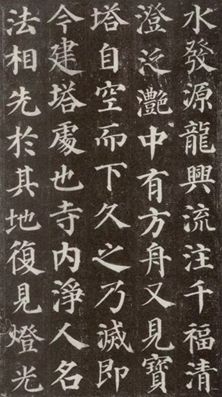 水發源龍興流注千福清
澄泛灩中有方舟又見寶
塔自空而下久之乃滅即
今建塔處也寺內淨人名
法相先於其地復見燈光